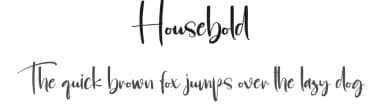 Housebold
The quick brown fox jumps over the lazy dog